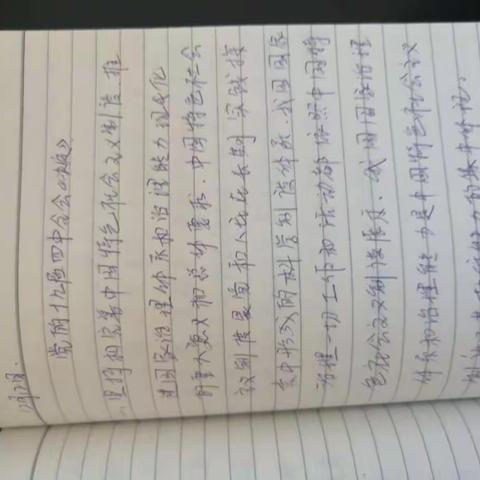 党的十九届四中全会《决定》
一、坚持和完善中国特色社会主义制度、推
进国家治理体系和治理能力现代化
的重大意义和总体要求。中国特色社会
主义制度是党和人民在长期实践探
索中形成的科学制度体系，我国国家
治理一切工作和活动都依照中国特
色社会主义制度展开，我国国家治理
体系和治理能力是中国特色社会主义
制度及其执行能力的集中体现。